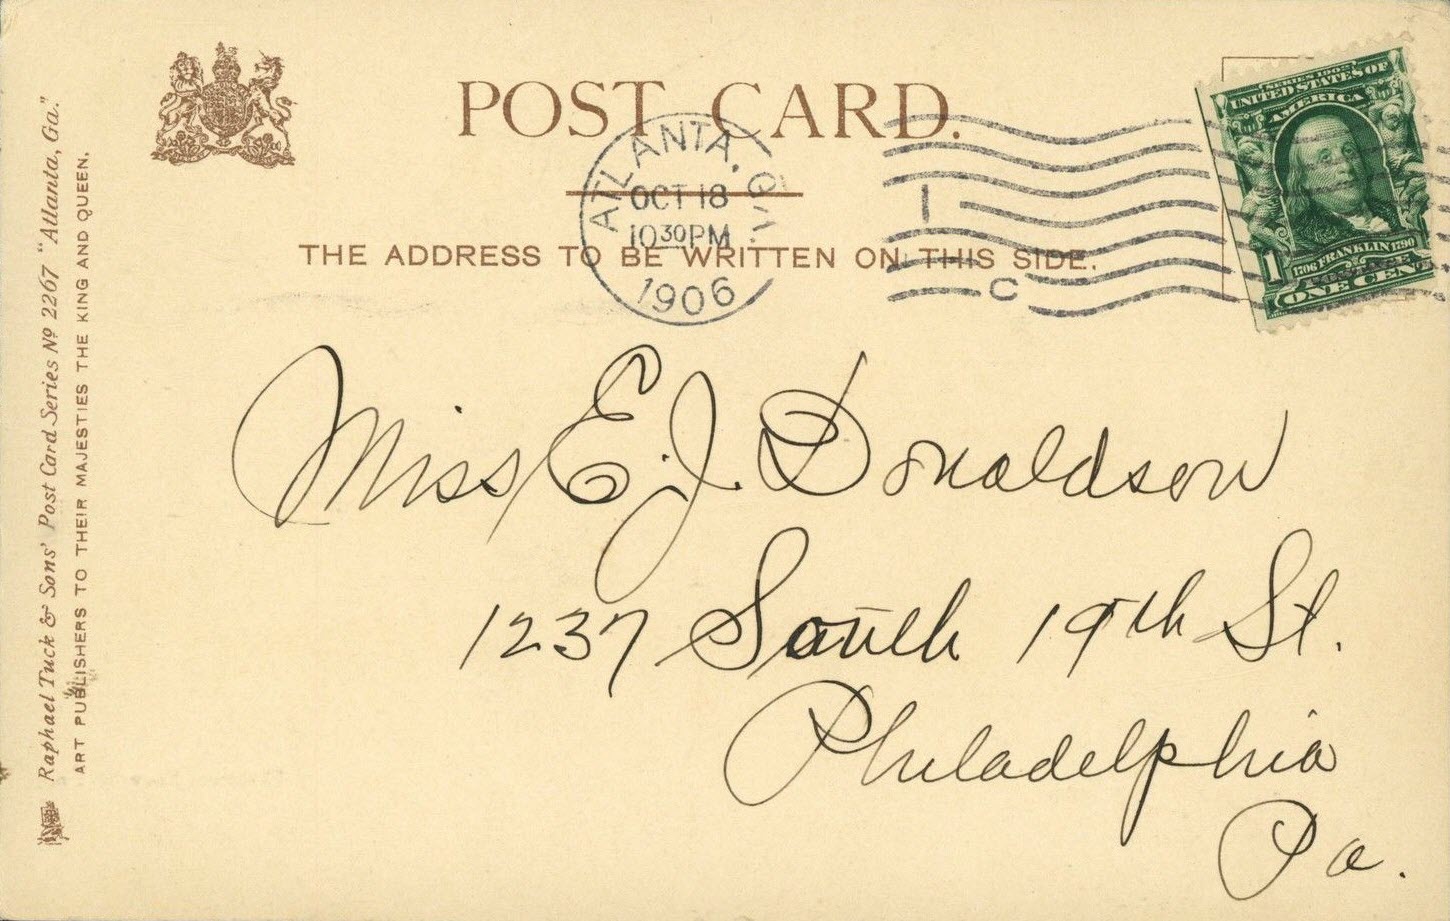 POST CARD.
ATLANTA, GA.
OCT 18
10 30 PM
1906
1
C
SERIES 1902
UNITED STATES OF
AMERICA
1706 FRANKLIN 1790
1
ONE CENT
THE ADDRESS TO BE WRITTEN ON THIS SIDE.
Miss E. J. Donaldson
1237 South 19th St.
Philadelphia
Pa.
Raphael Tuck & Sons' Post Card Series Nº 2267 "Atlanta, Ga."
ART PUBLISHERS TO THEIR MAJESTIES THE KING AND QUEEN.